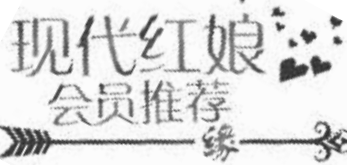 现代红娘
会员推荐
缘